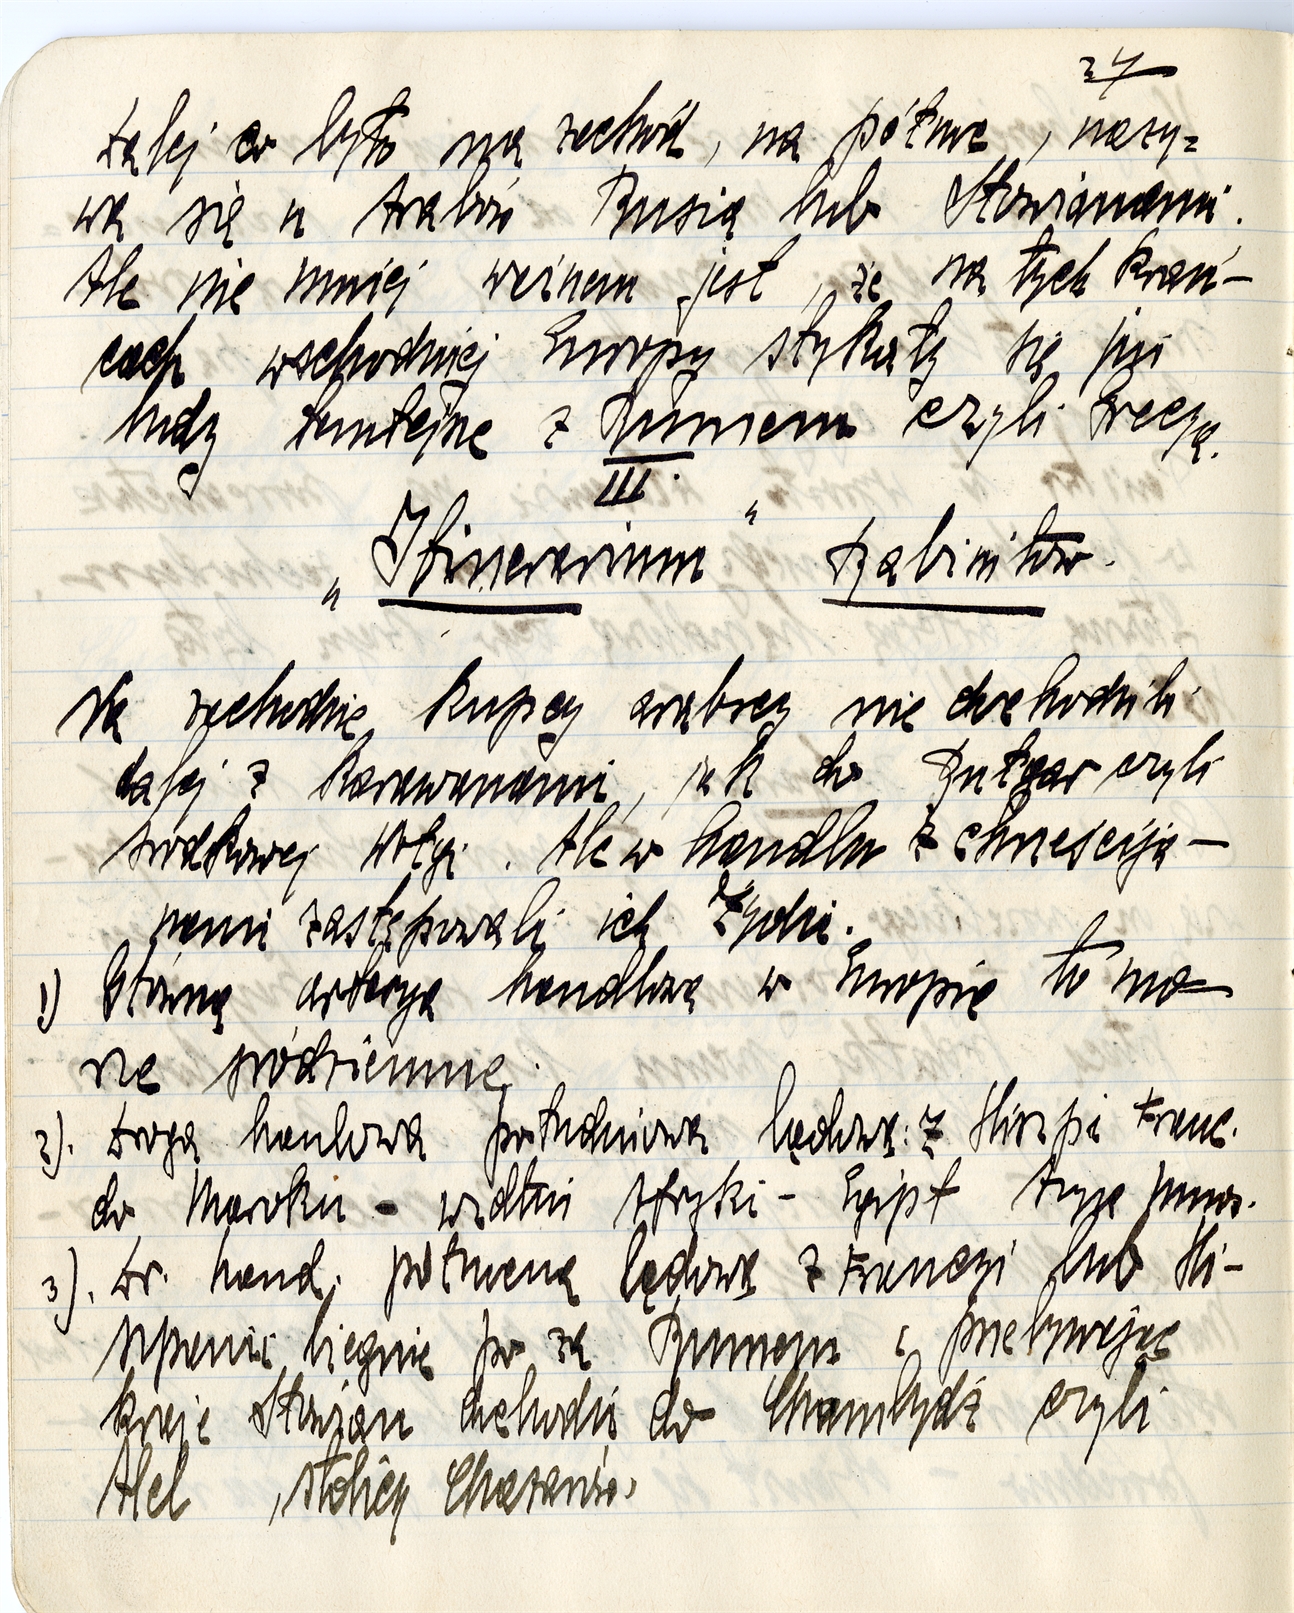 24
Dalej co było na zachód, na północ, nazy=
wa się u Arabów Rusią lub Słowianami.
Ale nie mniej ważnem jest, że na tych krań-
cach wschodniej Europy stykały się już
ludy tamtejsze z Rumem czyli Grecją.
III.
„Itinerarium" Rabinitów.
Na zachodzie kupcy arabscy nie dochodzili
dalej z karawanami, jak do Bułgar czyli
środkowej Wołgi. Ale w handlu z chrześcija-
nami zastępowali ich Żydzi.
1) Główną arterją handlową w Europie to mo-
rze śródziemne.
2). Droga handlowa południowa lądowa: z Hiszp i Franc.
do Maroku - wzdłuż Afryki - Egipt
3). Dr. hand. północna lądowa z Francji lub Hi-
szpanii biegnie po za Rumem i przebywając
kraje Słowian dochodzi do Chamlydż czyli
Itel, stolicy Chazarów.